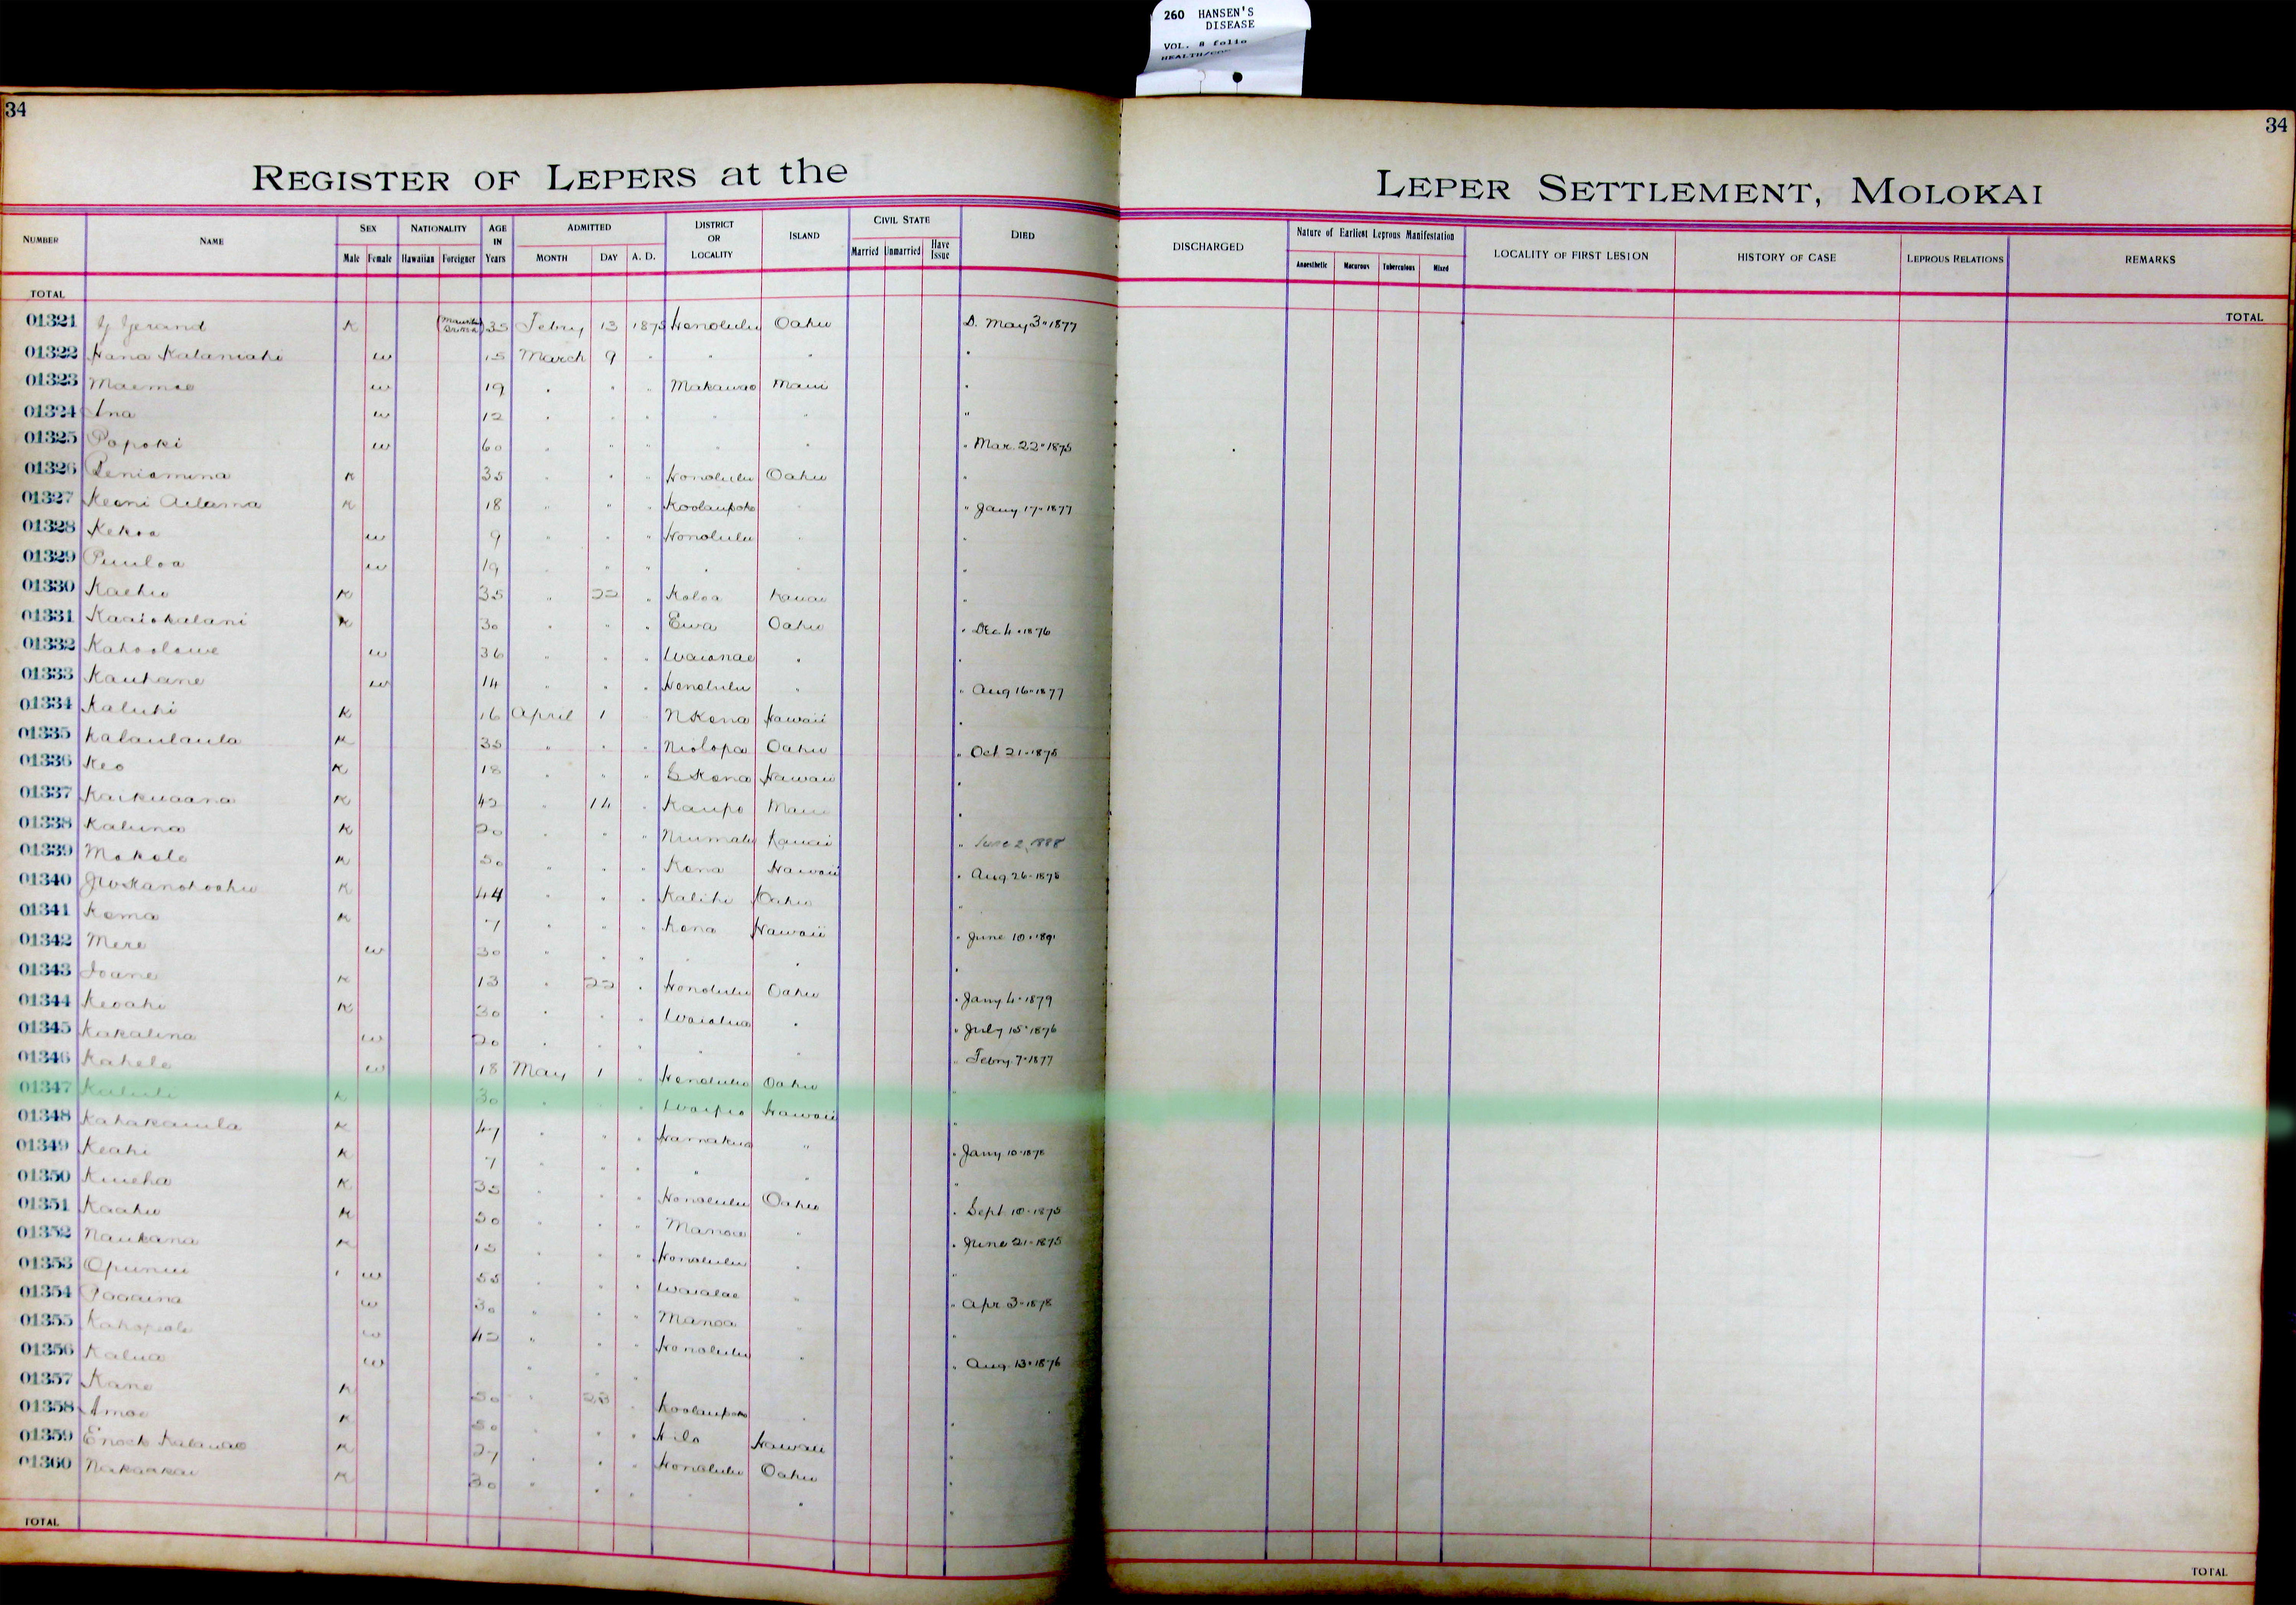 260 HANSEN'S
DISEASE
VOL. 8 folio
34
34
REGISTER OF LEPERS at the LEPER SETTLEMENT, MOLOKAI
NUMBER NAME SEX NATIONALITY AGE IN Years ADMITTED DISTRICT OR LOCALITY ISLAND CIVIL STATE DIED DISCHARGED Nature of Earliest Leprous Manifestation LOCALITY OF FIRST LESION HISTORY OF CASE LEPROUS RELATIONS REMARKS
Male Female Hawaiian Foreigner MONTH DAY A. D. Married Unmarried Have Issue Anaesthetic Macurous Tuberculous Mixed
TOTAL TOTAL
01321 K 35 Febry 13 1875 Honolulu Oahu D. May 3 " 1877
01322 Hana Kalaniahi w 15 March 9 " " " "
01323 Maemae w 19 " " " Makawao Maui "
01324 Ana w 12 " " " " " "
01325 Popoki w 60 " " " " " " Mar. 22 " 1875
01326 Peniamina K 35 " " " Honolulu Oahu "
01327 Keoni Adama K 18 " " " Koolaupoko " " Jany 17 " 1877
01328 Kekoa w 9 " " " Honolulu " "
01329 Puuloa w 19 " " " " " "
01330 Kaehu K 35 " 22 " Koloa Kauai "
01331 Kaaiokalani K 30 " " " Ewa Oahu " Dec 4 " 1876
01332 Kahoolawe w 36 " " " Waianae " "
01333 Kauhane w 14 " " " Honolulu " " Aug 16 " 1877
01334 Kaluhi K 16 April 1 " N Kona Hawaii "
01335 Kalaulaula K 35 " " " Niolopa Oahu " Oct 21 " 1875
01336 Keo K 18 " " " S Kona Hawaii "
01337 Kaikuaana K 42 " 14 " Kaupo Maui "
01338 Kaluna K 20 " " " Niumalu Kauai " June 2, 1888
01339 Makole K 50 " " " Kona Hawaii " Aug 26 " 1878
01340 K 44 " " " Kalihi Oahu "
01341 Kema K 7 " " " Kona Hawaii " June 10 " 1891
01342 Mere w 30 " " " " " "
01343 Ioane K 13 " 22 " Honolulu Oahu " Jany 4 " 1879
01344 Keoahi K 30 " " " Waialua " " July 15 " 1876
01345 Kakalina w 20 " " " " " " Febry. 7 " 1877
01346 Kahele w 18 May 1 " Honolulu Oahu "
01347 K 30 " " " Waipio Hawaii "
01348 Kahakauila K 47 " " " Hamakua " " Jany 10 " 1878
01349 Keahi K 7 " " " " " "
01350 Kuheha K 35 " " " Honolulu Oahu " Sept 10 " 1875
01351 Kaahu K 50 " " " Manoa " " June 21 " 1875
01352 Naukana K 15 " " " Honolulu " "
01353 Opunui w 55 " " " Waialae " " Apr 3 " 1878
01354 Paaaina w 30 " " " Manoa " "
01355 w 42 " " " Honolulu " " Aug. 13 " 1876
01356 Kalua w " " "
01357 Kane K 50 " 28 " Koolaupoko " "
01358 Amoe K 50 " " " Hilo Hawaii "
01359 Enoch Kalauao K 27 " " " Honolulu Oahu "
01360 Nakaakai K 30 " " " " " "
TOTAL TOTAL